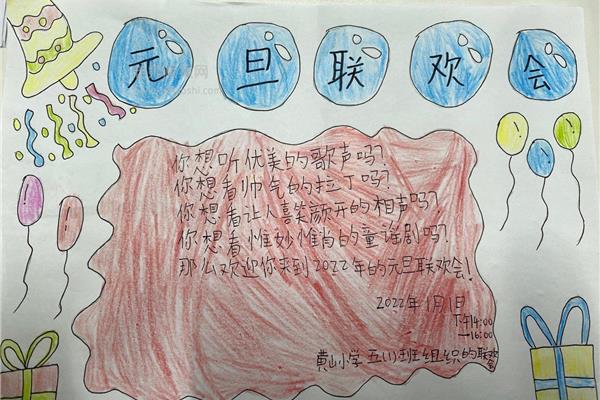 元旦联欢会
你想听优美的歌声吗?
你想看帅气的拉丁吗?
你想看让人喜笑颜开的相声吗?
你想看惟妙惟肖的童谣剧吗?
那么欢迎你来到2022年的元旦联欢会!
2022年1月1日
下午14:00
→16:00
黄山小学五(1)班组织的联欢会